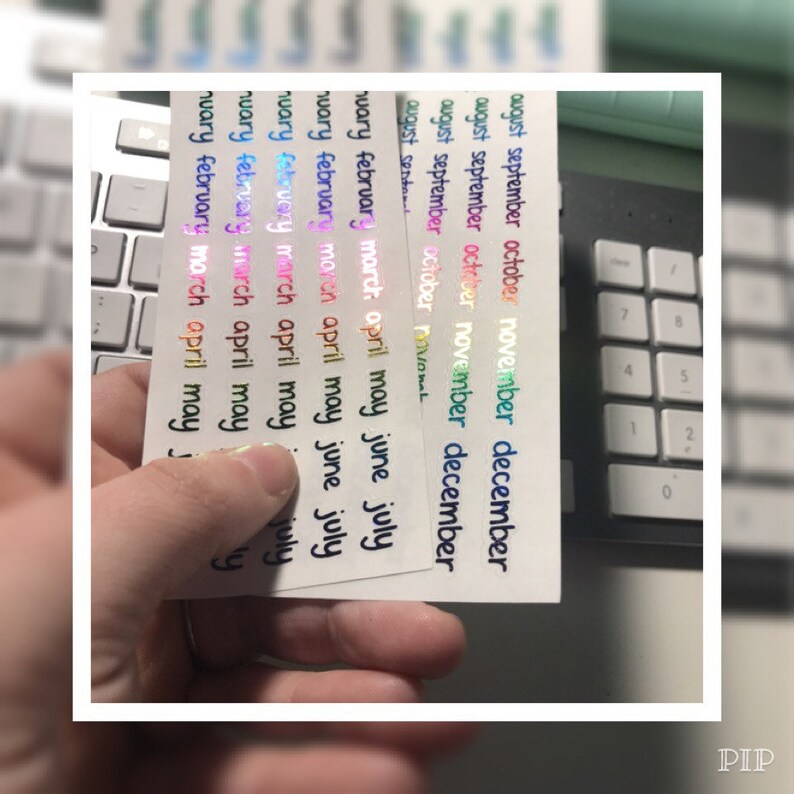 nuary february march april may
nuary february march april may
nuary february march april may july
nuary february march april may june july
nuary february march april may june july
august
august september october november
august september october november december
august september october november december
clear /
7 8
4 5
1 2
0
PIP